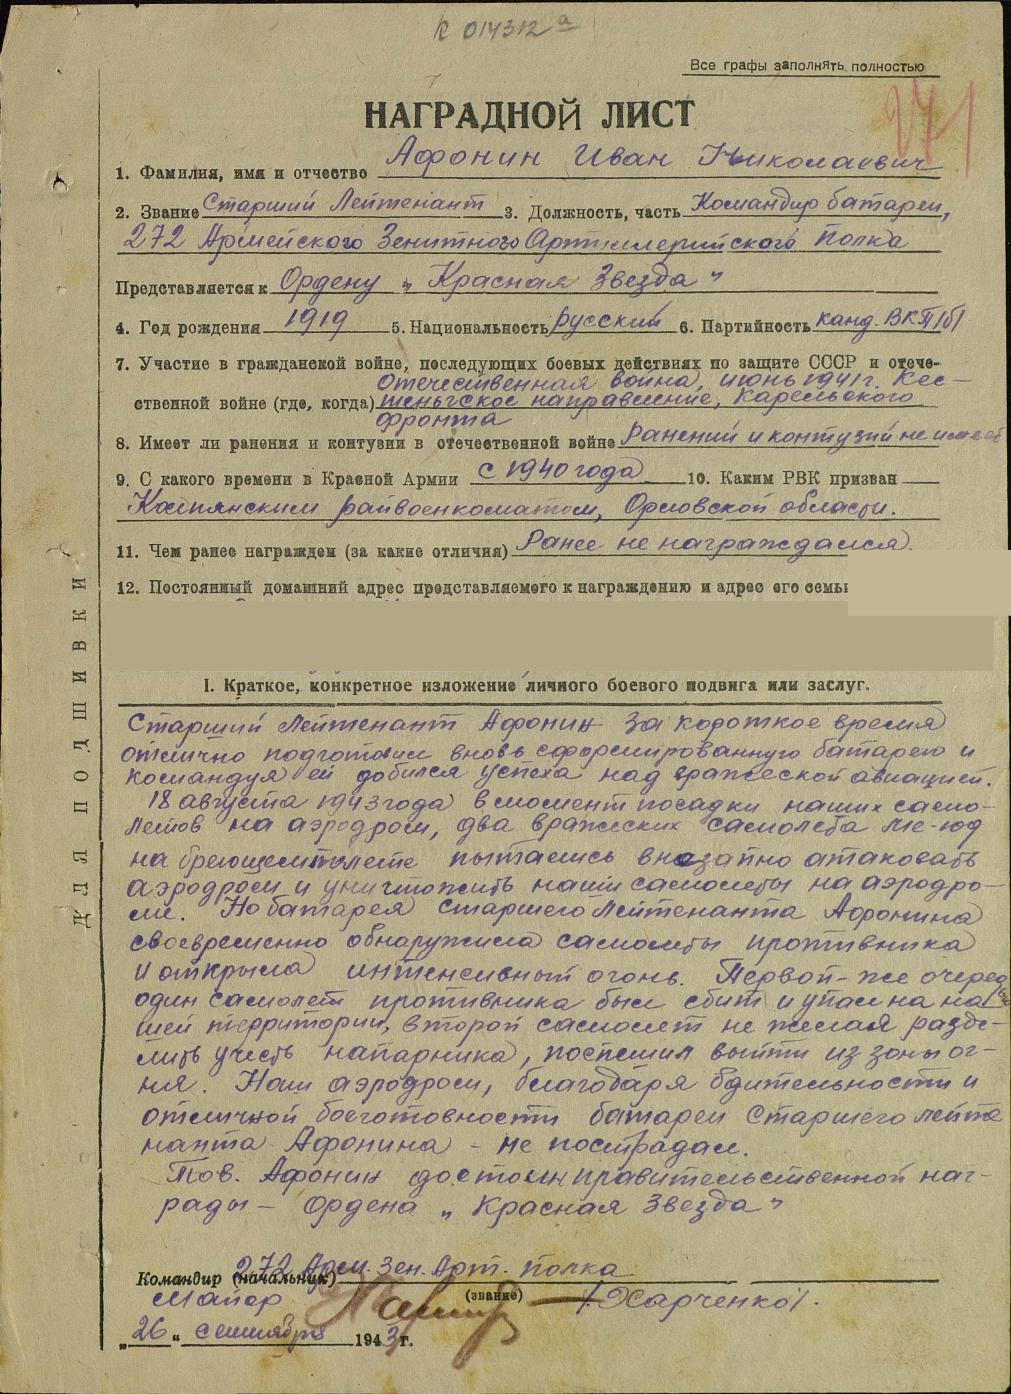 014312 а
Все графы заполнять полностью
271
НАГРАДНОЙ ЛИСТ
1. Фамилия, имя и отчество Афонин Иван Николаевич
2. Звание Старший Лейтенант 3. Должность, часть Командир батареи,
272 Армейского Зенитного Артиллерийского полка
Представляется к Ордену „Красная Звезда"
4. Год рождения 1919 5. Национальность русский 6. Партийность канд. ВКП/б/
7. Участие в гражданской войне, последующих боевых действиях по защите СССР и отече-
Отечественная война, июнь 1941 г. Кес-
ственной войне (где, когда) теньгское направление, Карельского
фронта
8. Имеет ли ранения и контузии в отечественной войне Ранений и контузий не имеет
9. С какого времени в Красной Армии с 1940 года 10. Каким РВК призван
райвоенкоматом, Орловской области.
11. Чем ранее награжден (за какие отличия) Ранее не награждался.
12. Постоянный домашний адрес представляемого к награждению и адрес его семьи
ДЛЯ ПОДШИВКИ
I. Краткое, конкретное изложение личного боевого подвига или заслуг.
Старший Лейтенант Афонин за короткое время
отлично подготовил вновь сформированную батарею и
командуя ей добился успеха над вражеской авиацией.
18 августа 1943 года в момент посадки наших само-
летов на аэродром, два вражеских самолета МЕ-109
на бреющем полете пытались внезапно атаковать
аэродром и уничтожить наши самолеты на аэродро-
ме. Но батарея старшего Лейтенанта Афонина
своевременно обнаружила самолеты противника
и открыла интенсивный огонь. Первой-же очередью
один самолет противника был сбит и упал на на-
шей территории, второй самолет не желая разде-
лить участь напарника, поспешил выйти из зоны ог-
ня. Наш аэродром, благодаря бдительности и
отличной боеготовности батареи Старшего лейте
нанта Афонина - не пострадал.
Тов. Афонин достоин правительственной наг-
рады - Ордена „Красная Звезда"
272 Арм. Зен. Арт. полка
Командир (начальник)
Майор (звание) /Харченко/.
„26" сентября 1943 г.